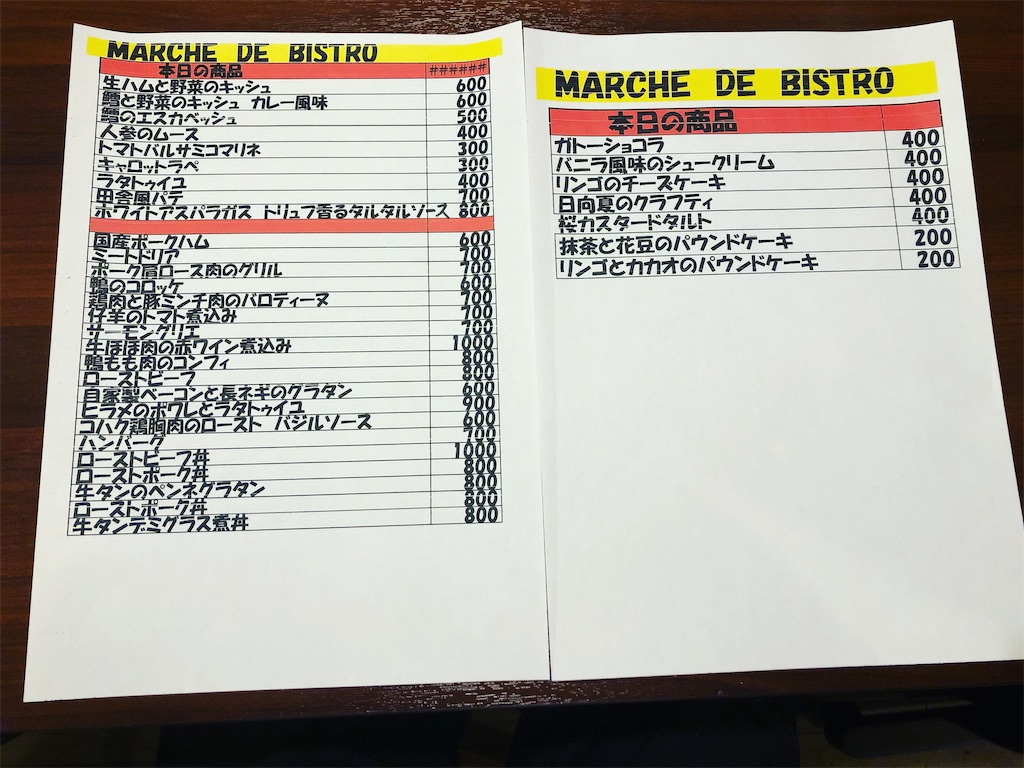 MARCHE DE BISTRO
本日の商品 ######
生ハムと野菜のキッシュ 600
鱈と野菜のキッシュ カレー風味 600
鱈のエスカベッシュ 500
人参のムース 400
トマトバルサミコマリネ 300
キャロットラペ 300
ラタトゥイユ 400
田舎風パテ 700
ホワイトアスパラガス トリュフ香るタルタルソース 800
国産ポークハム 600
ミートドリア 700
ポーク肩ロース肉のグリル 700
鴨のコロッケ 600
鶏肉と豚ミンチ肉のバロティーヌ 700
仔羊のトマト煮込み 700
サーモングリエ 700
牛ほほ肉の赤ワイン煮込み 1000
鴨もも肉のコンフィ 800
ローストビーフ 800
自家製ベーコンと長ネギのグラタン 600
ヒラメのポワレとラタトゥイユ 900
コハク鶏胸肉のロースト バジルソース 600
ハンバーグ 700
ローストビーフ丼 1000
ローストポーク丼 800
牛タンのペンネグラタン 800
ローストポーク丼 800
牛タンデミグラス煮丼 800
MARCHE DE BISTRO
本日の商品
ガトーショコラ 400
バニラ風味のシュークリーム 400
リンゴのチーズケーキ 400
日向夏のクラフティ 400
桜カスタードタルト 400
抹茶と花豆のパウンドケーキ 200
リンゴとカカオのパウンドケーキ 200